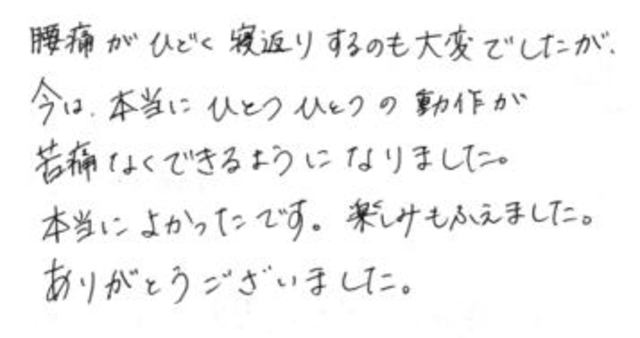 腰痛がひどく寝返りするのも大変でしたが、
今は、本当にひとつひとつの動作が
苦痛なくできるようになりました。
本当によかったです。楽しみもふえました。
ありがとうございました。